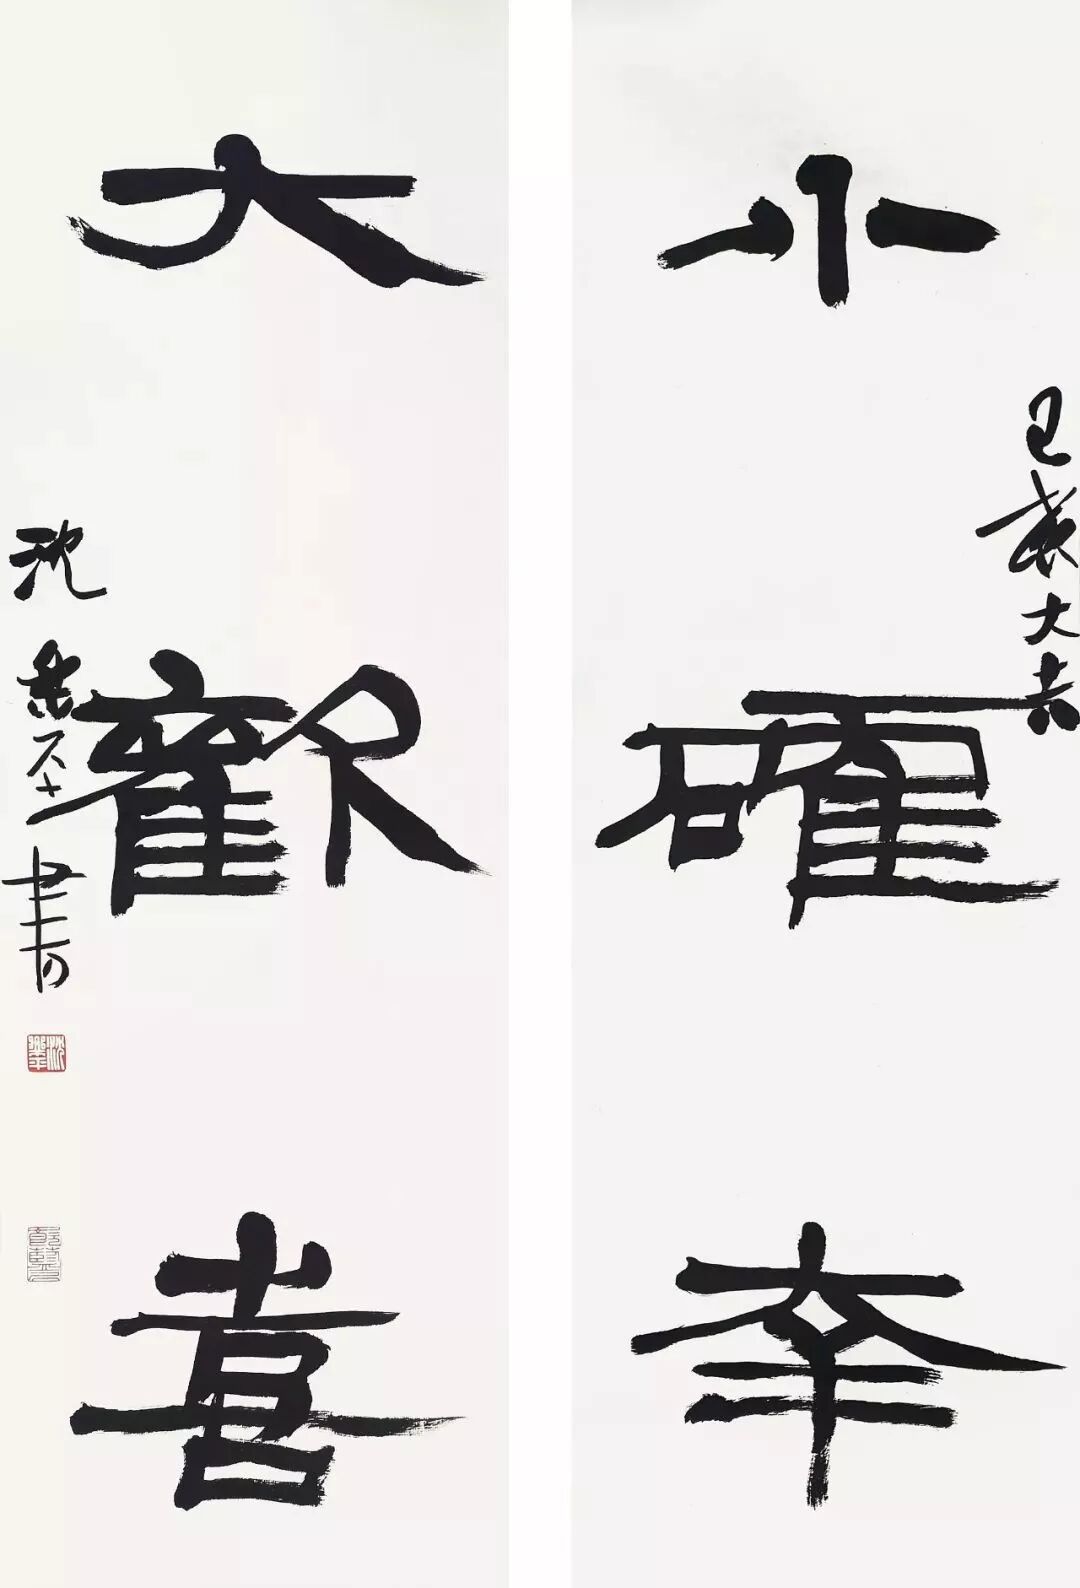 小確幸
己亥大吉
大歡喜
沈樂平書